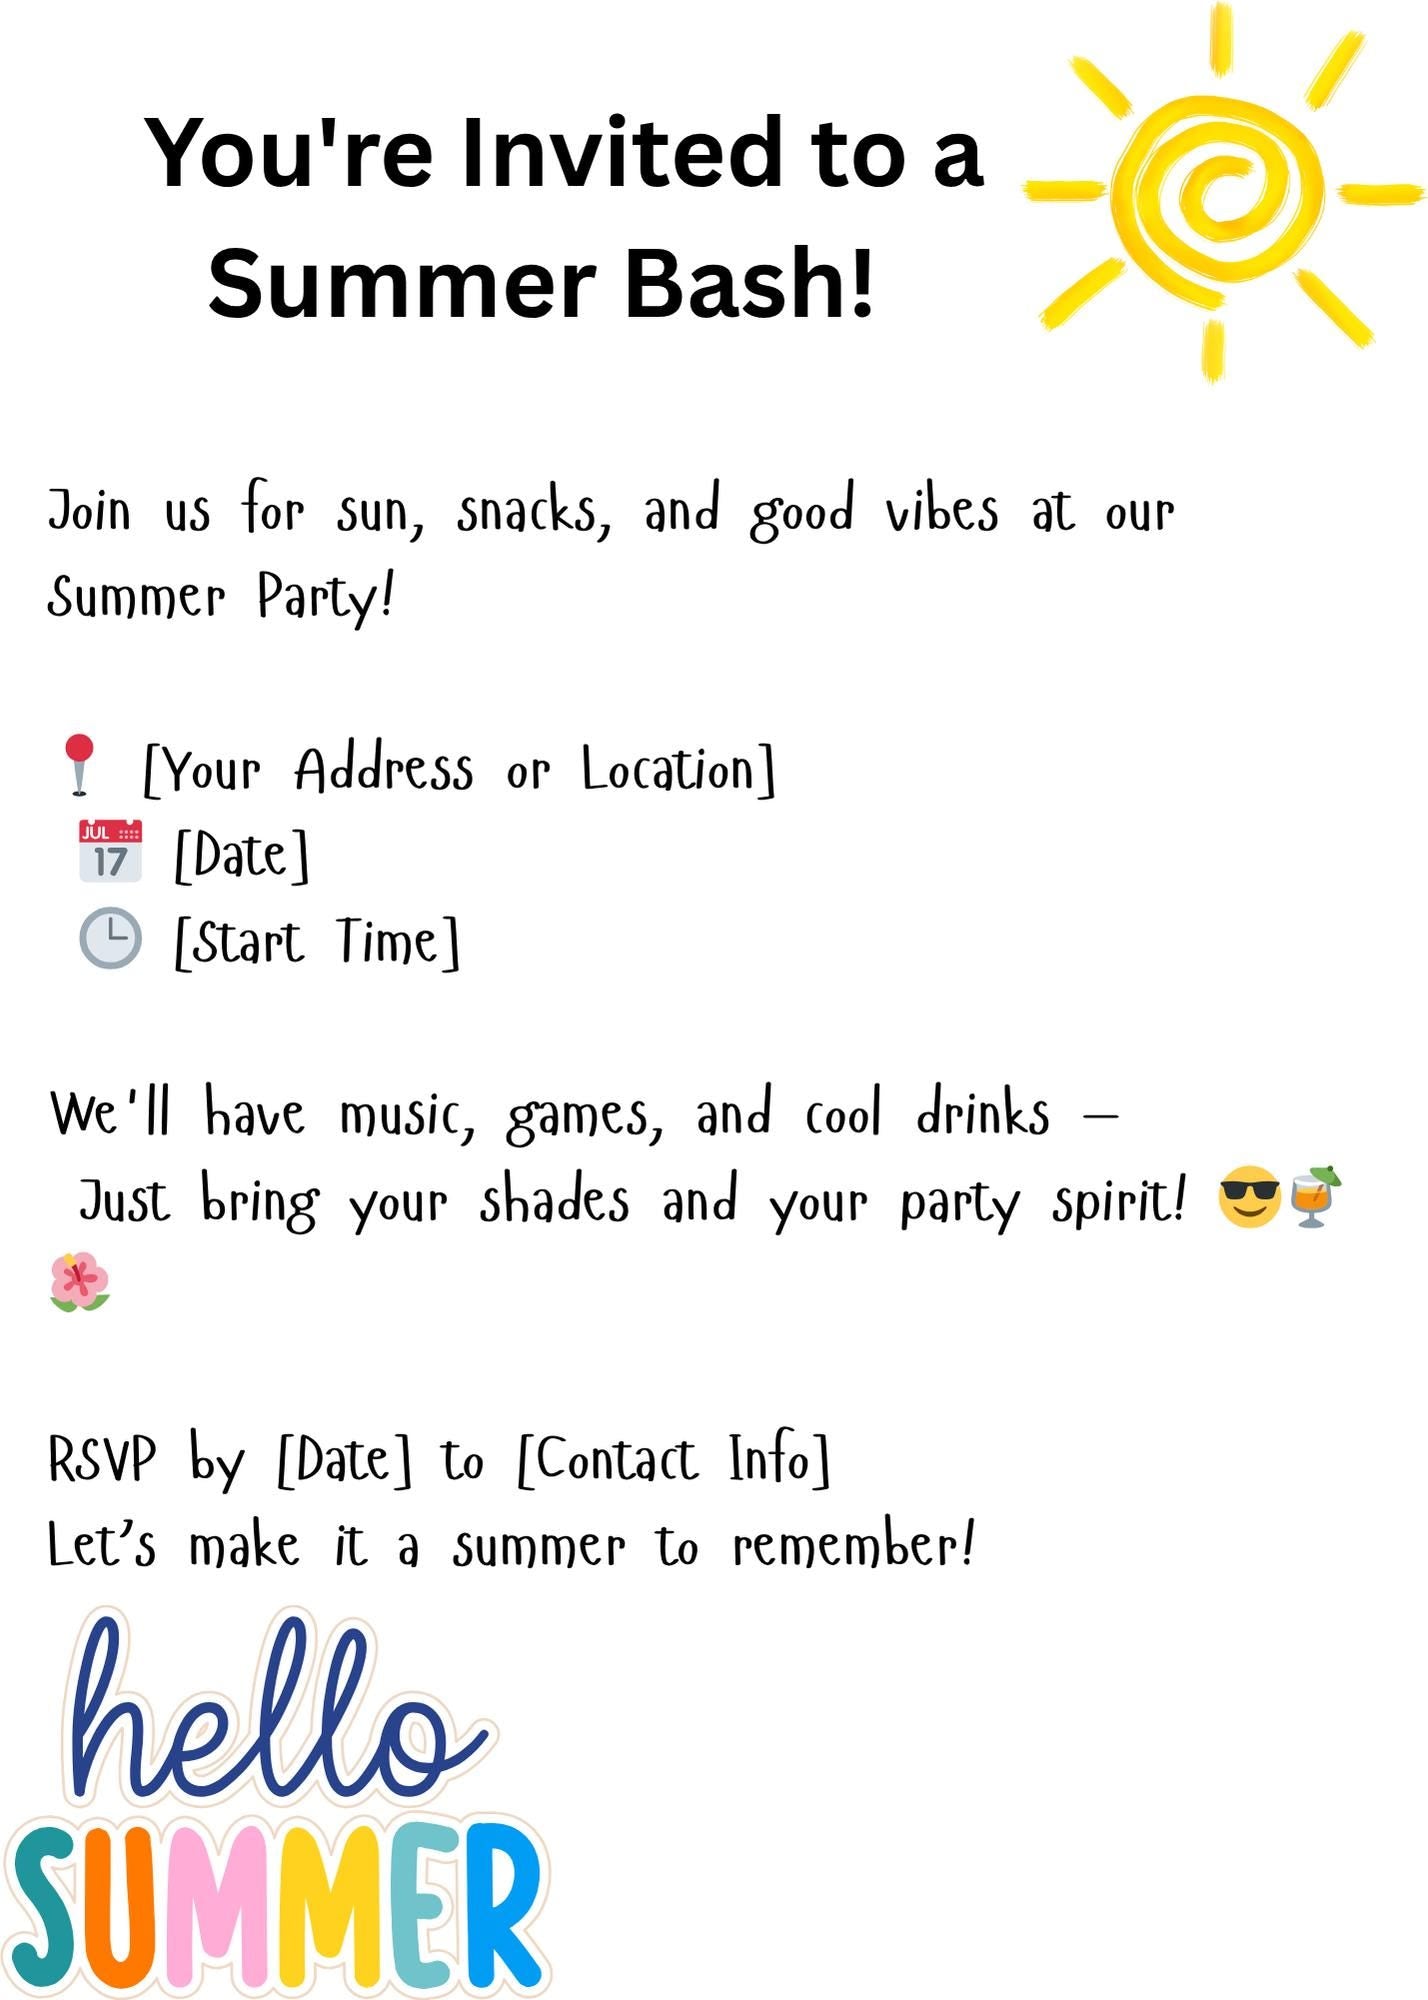 You're Invited to a
Summer Bash!
Join us for sun, snacks, and good vibes at our
Summer Party!
📍 [Your Address or Location]
📅 [Date]
🕒 [Start Time]
We'll have music, games, and cool drinks –
Just bring your shades and your party spirit! 😎🍹
🌺
RSVP by [Date] to [Contact Info]
Let’s make it a summer to remember!
hello
SUMMER